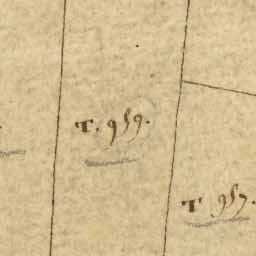 T. 959.
T 957.